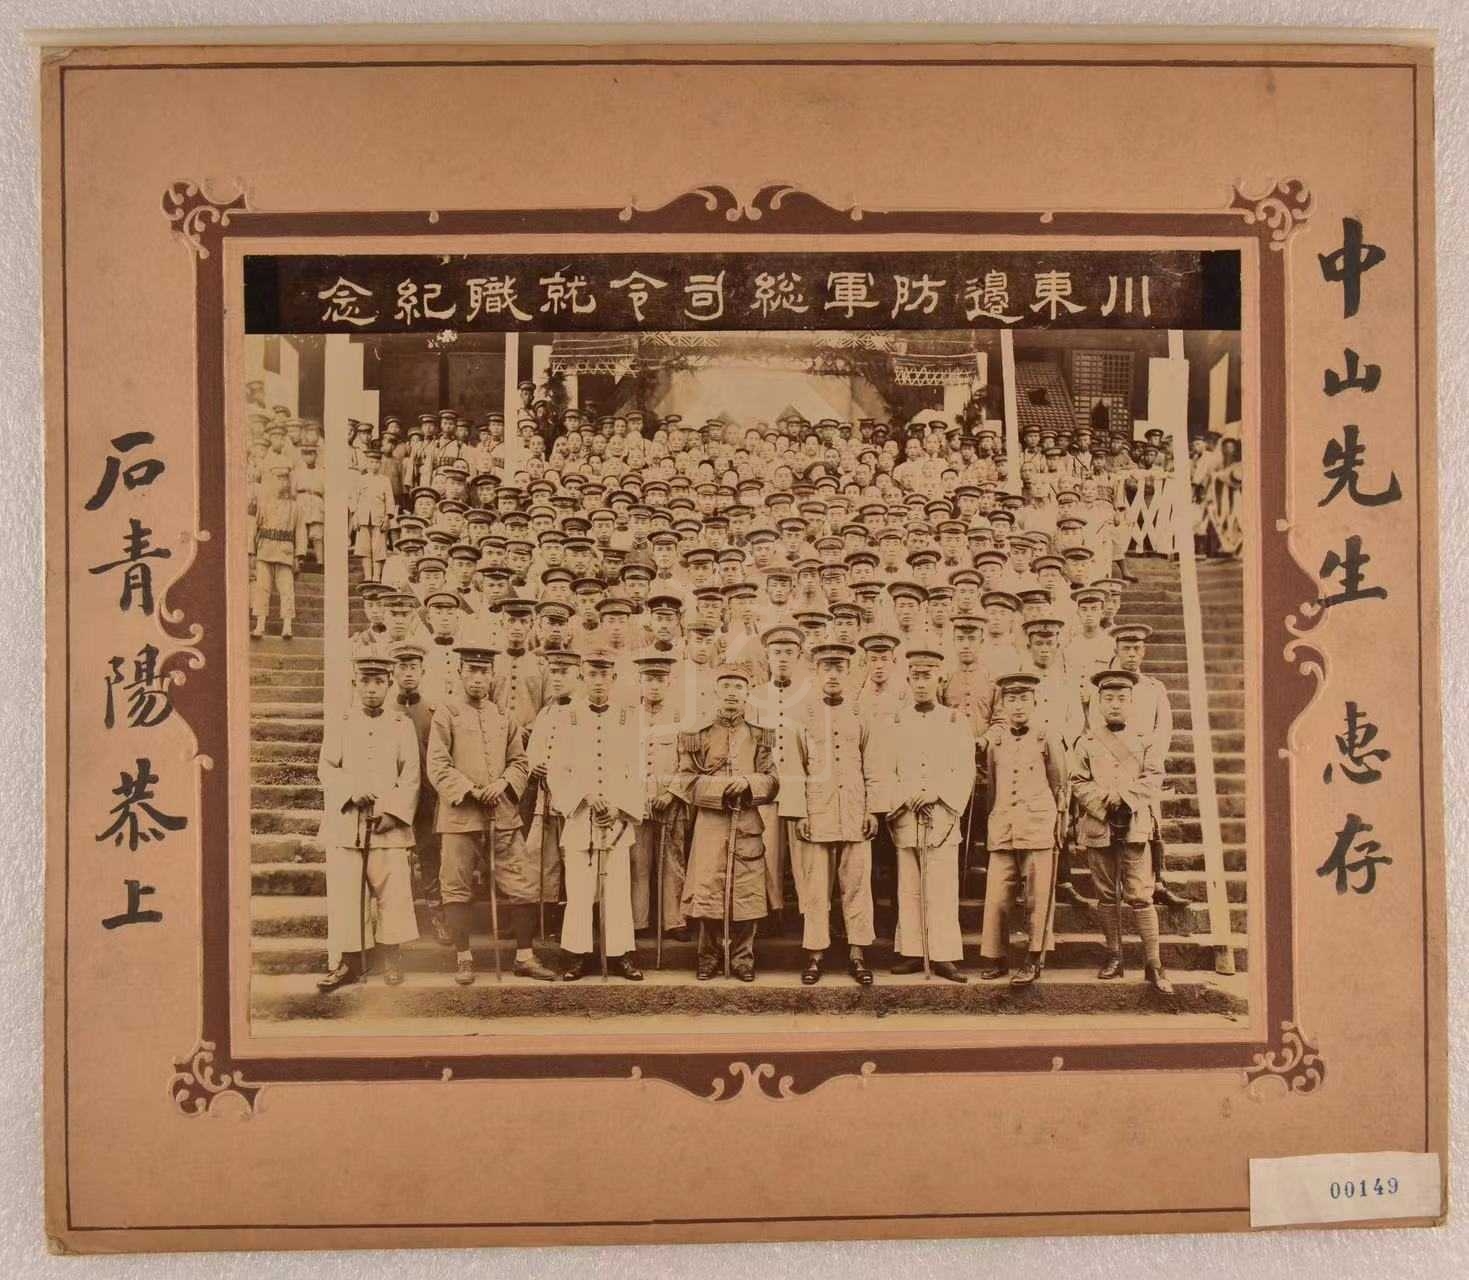 川東邊防軍総司令就職紀念
中山先生 惠存
石青陽恭上
00149